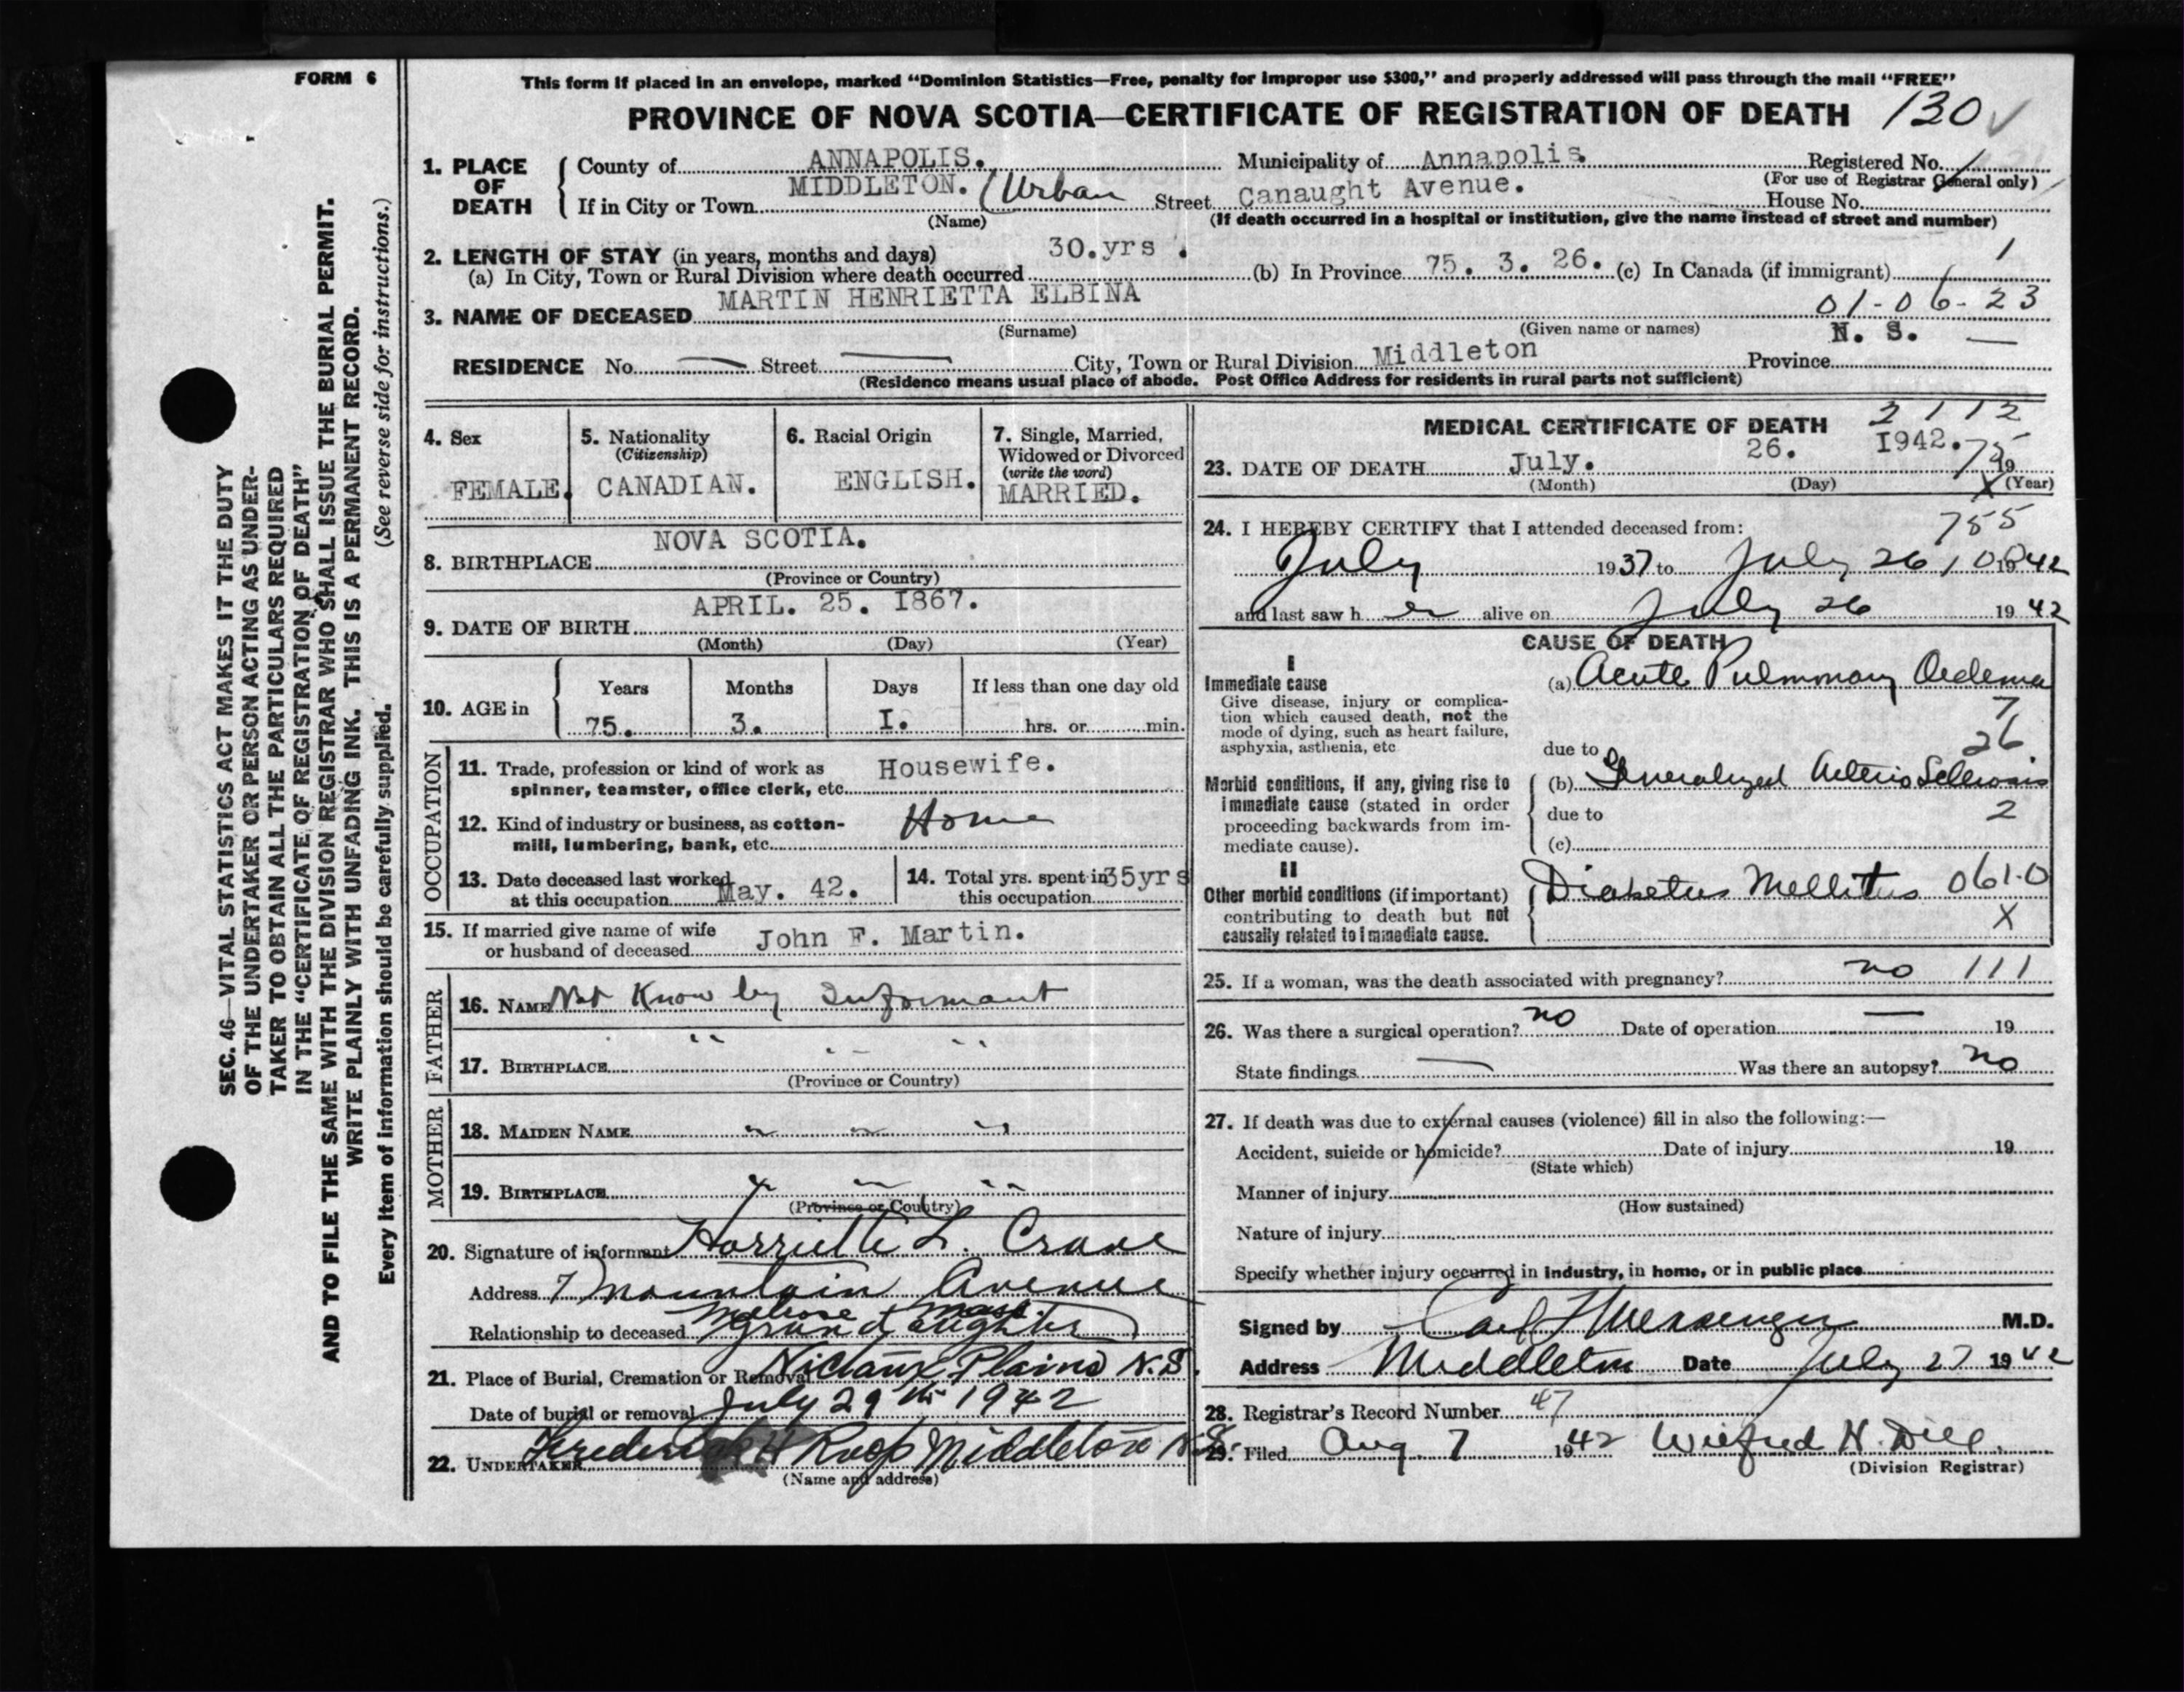 FORM 6
This form if placed in an envelope, marked “Dominion Statistics—Free, penalty for improper use $300,” and properly addressed will pass through the mail “FREE”
PROVINCE OF NOVA SCOTIA—CERTIFICATE OF REGISTRATION OF DEATH 130
SEC. 46—VITAL STATISTICS ACT MAKES IT THE DUTY
OF THE UNDERTAKER OR PERSON ACTING AS UNDER-
TAKER TO OBTAIN ALL THE PARTICULARS REQUIRED
IN THE “CERTIFICATE OF REGISTRATION OF DEATH”
AND TO FILE THE SAME WITH THE DIVISION REGISTRAR WHO SHALL ISSUE THE BURIAL PERMIT.
WRITE PLAINLY WITH UNFADING INK. THIS IS A PERMANENT RECORD.
Every item of information should be carefully supplied. (See reverse side for instructions.)
1. PLACE OF DEATH County of ANNAPOLIS. Municipality of Annapolis. Registered No.
(For use of Registrar General only)
If in City or Town MIDDLETON. (Urban Street Canaught Avenue. House No.
(Name) (If death occurred in a hospital or institution, give the name instead of street and number)
2. LENGTH OF STAY (in years, months and days) 30.yrs . 1
(a) In City, Town or Rural Division where death occurred (b) In Province 75. 3. 26. (c) In Canada (if immigrant)
3. NAME OF DECEASED MARTIN HENRIETTA ELBINA 01-06-23
(Surname) (Given name or names)
RESIDENCE No. — Street — City, Town or Rural Division Middleton Province N. S. —
(Residence means usual place of abode. Post Office Address for residents in rural parts not sufficient)
4. Sex FEMALE.
5. Nationality (Citizenship) CANADIAN.
6. Racial Origin ENGLISH.
7. Single, Married, Widowed or Divorced (write the word) MARRIED.
8. BIRTHPLACE NOVA SCOTIA.
(Province or Country)
9. DATE OF BIRTH APRIL. 25. I867.
(Month) (Day) (Year)
10. AGE in Years Months Days If less than one day old
75. 3. I. hrs. or min.
OCCUPATION
11. Trade, profession or kind of work as Housewife.
spinner, teamster, office clerk, etc.
12. Kind of industry or business, as cotton- Home
mill, lumbering, bank, etc.
13. Date deceased last worked at this occupation May. 42.
14. Total yrs. spent in this occupation 35yrs
15. If married give name of wife or husband of deceased John F. Martin.
FATHER
16. NAME Not Know by Informant
17. BIRTHPLACE " " "
(Province or Country)
MOTHER
18. MAIDEN NAME " " "
19. BIRTHPLACE " " "
(Province or Country)
20. Signature of informant Harriette L. Crane
Address 7 Mountain Avenue
Melrose Mass.
Relationship to deceased granddaughter
21. Place of Burial, Cremation or Removal Nictaux Plains N.S.
Date of burial or removal July 29th 1942
22. UNDERTAKER Frederick H Roop Middleton N.S.
(Name and address)
MEDICAL CERTIFICATE OF DEATH 2112
23. DATE OF DEATH July. 26. I942. 19 75
(Month) (Day) (Year)
X
24. I HEREBY CERTIFY that I attended deceased from: 755
July 1937 to July 26 1942
and last saw her alive on July 26 1942
CAUSE OF DEATH
I
Immediate cause (a) Acute Pulmonary Oedema
Give disease, injury or complica-
tion which caused death, not the
mode of dying, such as heart failure,
asphyxia, asthenia, etc due to
7
26
Morbid conditions, if any, giving rise to (b) Generalized Arterio Sclerosis
immediate cause (stated in order due to 2
proceeding backwards from im-
mediate cause). (c)
II
Other morbid conditions (if important) Diabetus Mellitus 061.0
contributing to death but not X
causally related to immediate cause.
25. If a woman, was the death associated with pregnancy? no 111
26. Was there a surgical operation? no Date of operation — 19
State findings — Was there an autopsy? no
27. If death was due to external causes (violence) fill in also the following:—
Accident, suicide or homicide? Date of injury 19
(State which)
Manner of injury
(How sustained)
Nature of injury
Specify whether injury occurred in industry, in home, or in public place
Signed by Messenger M.D.
Address Middleton Date July 27 1942
28. Registrar's Record Number 47
29. Filed Aug 7 1942 Wilfred H. Dill
(Division Registrar)